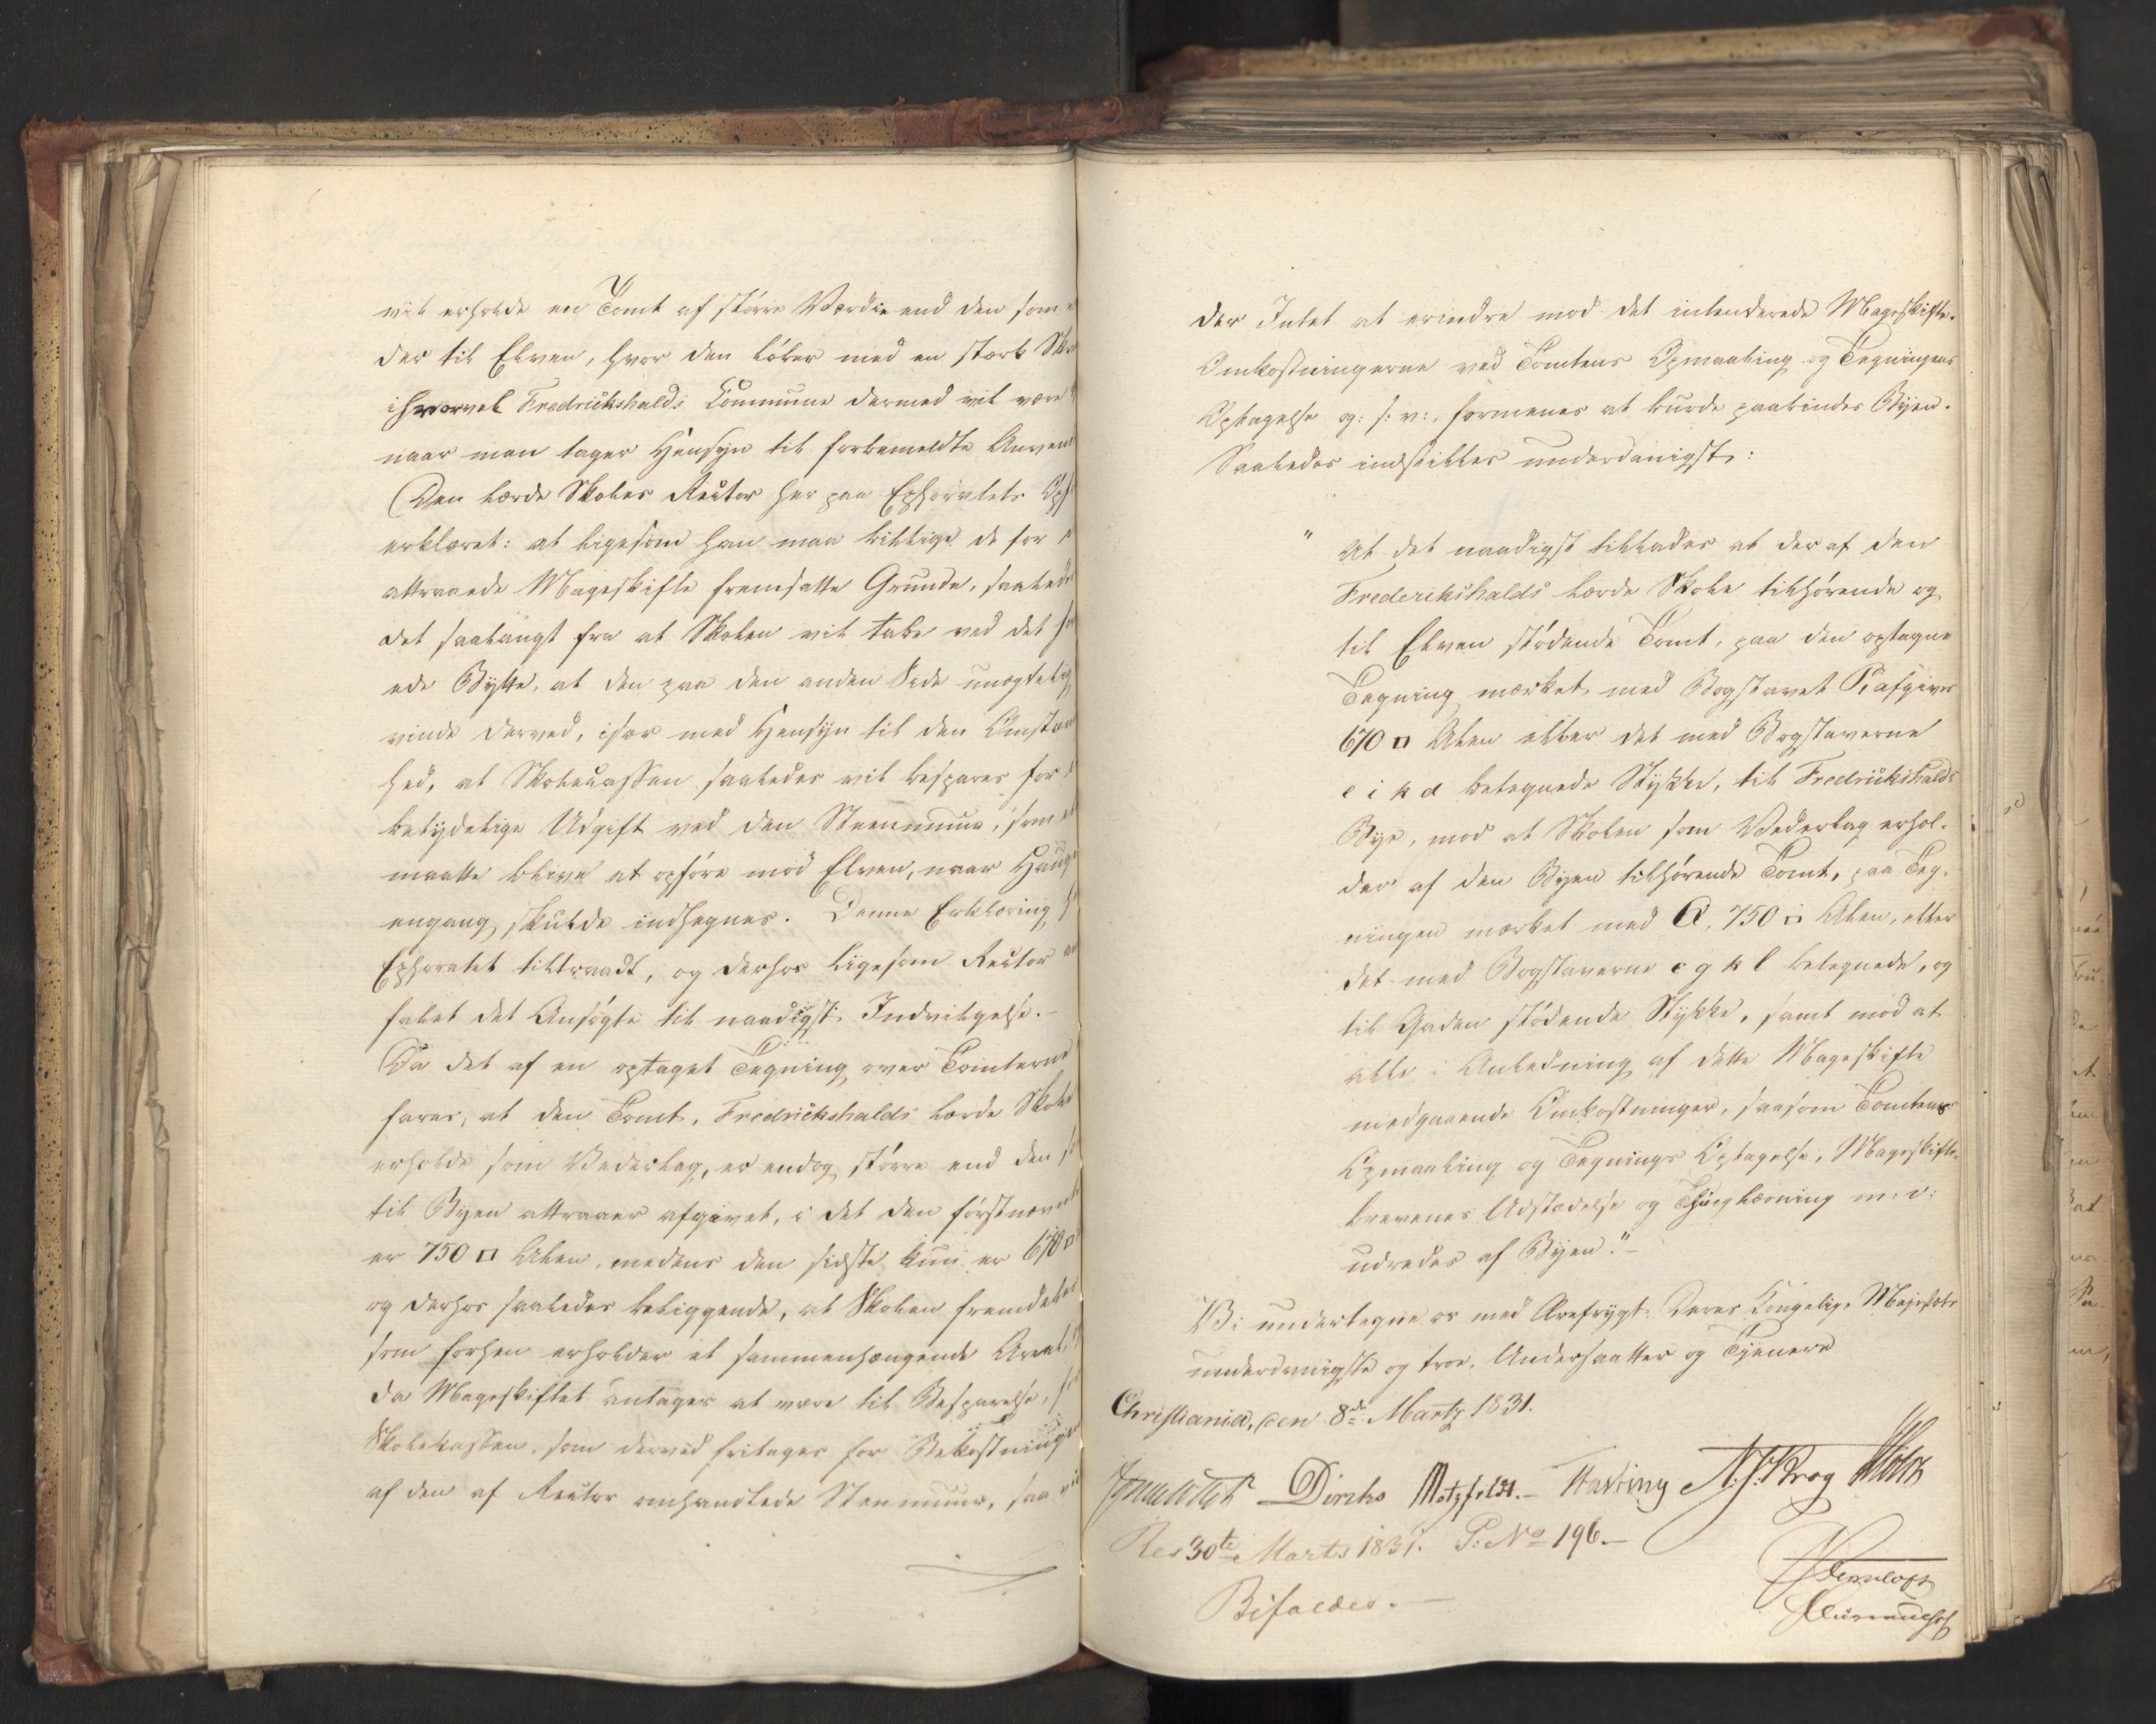 vil erholde en Tomt af större Værdie end den som
der til Elven, hvor den löber med en stærk
ihvorvel Fredrickshalds Commune dermed vil være
naar man tager Hensyn til forbemeldte
Den lærde Skoles Rector har paa Ephoratets
erklæret: at ligesom han maa billige de for
attraaede Mageskifte fremsatte Grunde, saaledes
det saalangt fra at Skolen vil tabe ved det
ede Bytte, at den paa den anden Side unægtelig
vinde derved, især med Hensyn til den
hed, at Skolecassen saaledes vil bespares for
betydelige Udgift ved den Steenmuur, som
maatte blive at opföre mod Elven, naar
engang skulde indhegnes. Denne Erklæring
Ephoratet tiltraadt, og derhos ligesom Rector
falet det Ansögte til naadigst Indvilgelse.-
Da det af en optaget Tegning over Tomterne
fares, at den Tomt, Fredrickshalds lærde
erholde som Vederlag, er endog större end den
til Byen attraaes afgivet, i det den förstnævnte
er 750 □ Alen, medens den sidste kun er 670 □
og derhos saaledes beliggende, at Skolen fremdeles
som forhen erholder et sammenhængende Areal,
da Mageskiftet antages at være til Besparelse,
Skolekassen, som derved fritages for Bekostningen
af den af Rector omhandlede Steenmuur, saa
der Intet at erindre mod det intenderede Mageskifte.
Omkostningerne ved Tomtens Opmaaling og Tegningens
Optagelse og: s: v:, formenes at burde paabindes Byen.
Saaledes indstilles underdanigst:
" At det naadigst tillades at der af den
Frederikshalds lærde Skole tilhörende og
til Elven stödende Tomt, paa den optagne
Tegning mærket med Bogstavet P, afgives
670 □ Alen eller det med Bogstaverne
e i k d betegnede Stykke, til Fredrickshalds
Bye, mod at Skolen som Vederlag erhol-
der af den Byen tilhörende Tomt, paa Teg-
ningen mærket med Q, 750 □ Alen, eller
det med Bogstaverne e g k l betegnede, og
til Gaden stödende Stykke, samt mod at
alle i Anledning af dette Mageskifte
medgaaende Omkostninger, saasom Tomtens
Opmaaling og Tegnings Optagelse, Mageskifte-
brevenes Udstædelse og Thinglæsning m: v:
udredes af Byen."-
Vi undertegne os med Ærefrygt Deres Kongelige Majestæts
underdanigste og troe Undersaatter og Tjenere
Christiania, den 8de Martz 1831.
Diriks Motzfeldt.- Fasting N. J. Krog Holst
Res 30te Marts 1831. P: No 196.-
Bifaldes.-